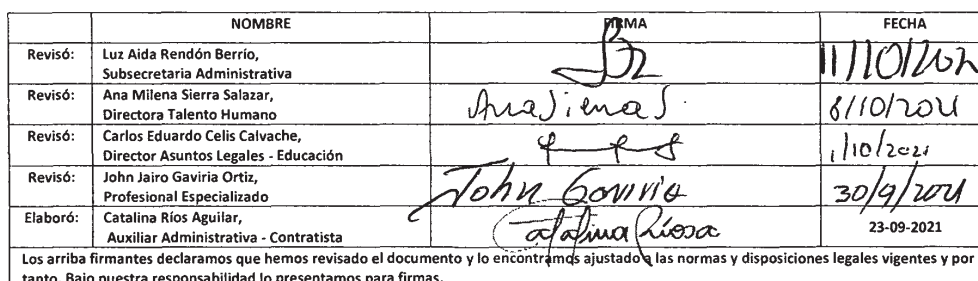 NOMBRE FIRMA FECHA
Revisó: Luz Aida Rendón Berrío,
Subsecretaria Administrativa
Revisó: Ana Milena Sierra Salazar,
Directora Talento Humano
AnaSierraS. 8/10/2021
Revisó: Carlos Eduardo Celis Calvache,
Director Asuntos Legales - Educación
1/10/2021
Revisó: John Jairo Gaviria Ortiz,
Profesional Especializado
John Gaviria 30/9/2021
Elaboró: Catalina Ríos Aguilar,
Auxiliar Administrativa - Contratista
Catalina Ríosa 23-09-2021
Los arriba firmantes declaramos que hemos revisado el documento y lo encontramos ajustado a las normas y disposiciones legales vigentes y por
tanto, Bajo nuestra responsabilidad lo presentamos para firmas.